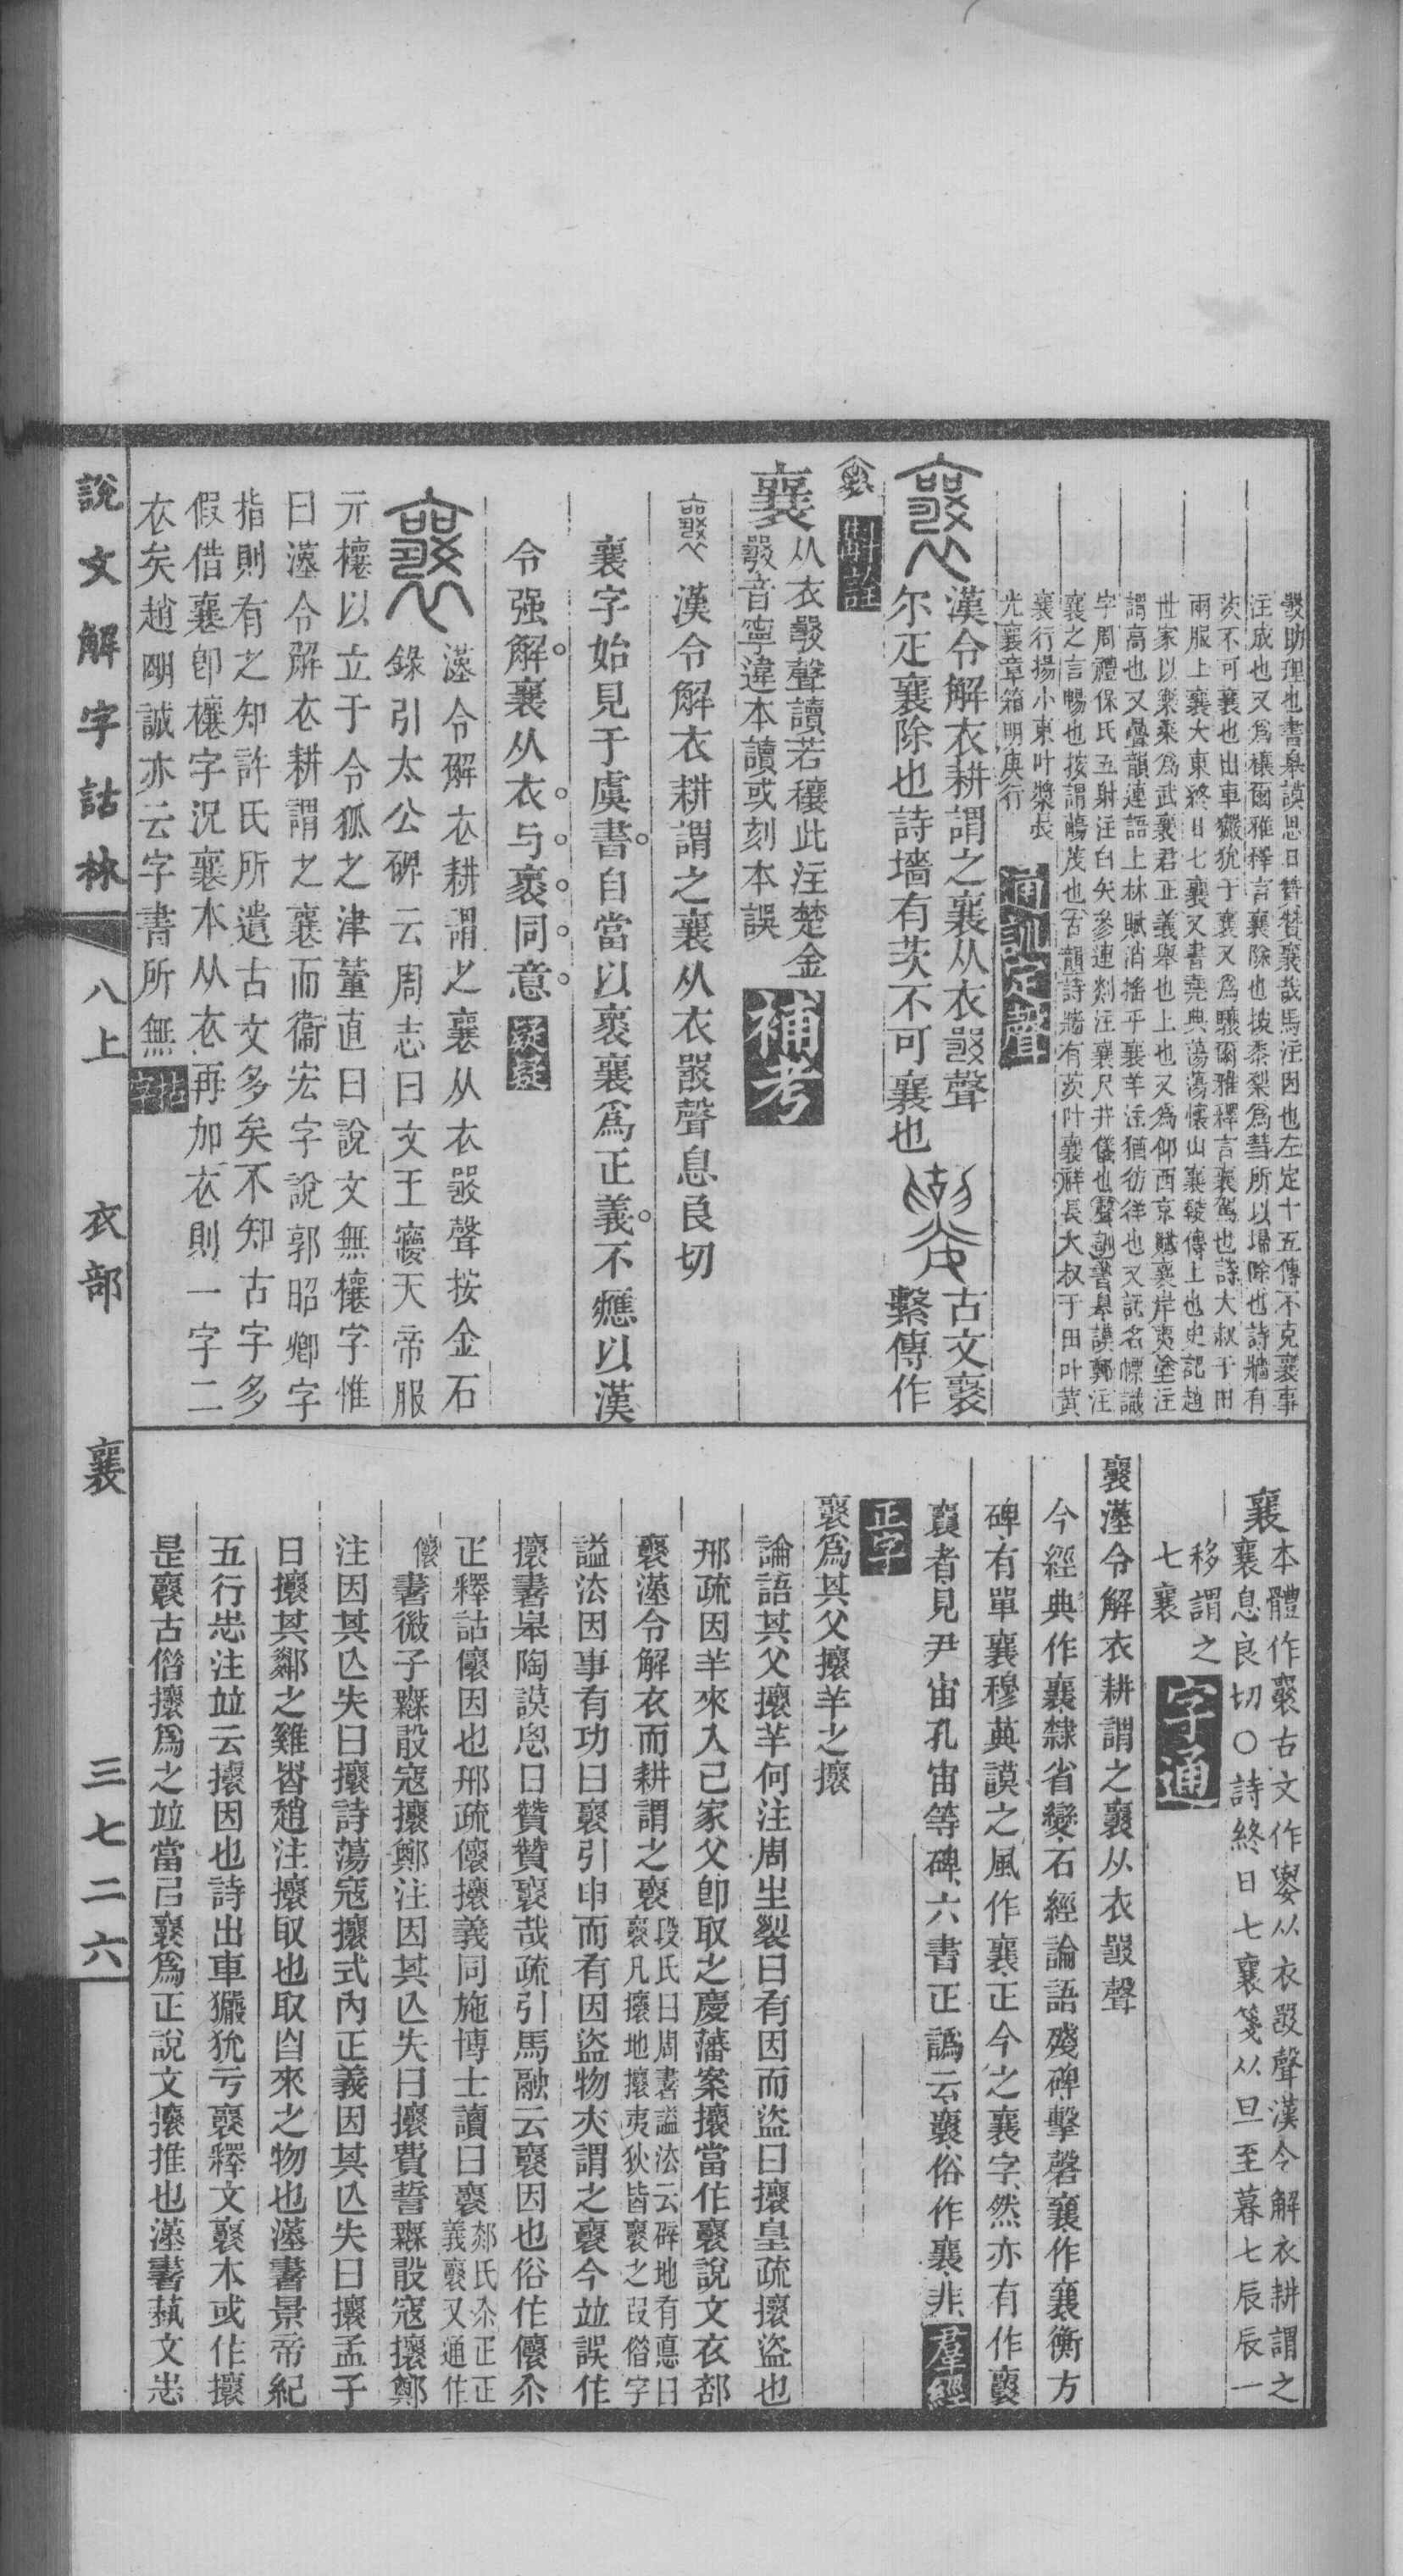 𤕦助理也書皋謨思日贊贊襄哉馬注因也左定十五傳不克襄事
注成也又爲攘爾雅釋言襄除也按黍梨爲彗所以埽除也詩牆有
茨不可襄也出車玁狁于襄又爲驤爾雅釋言襄駕也詩大叔于田
兩服上襄大東終日七襄又書堯典蕩蕩懷山襄陵傳上也史記趙
世家以樂乘爲武襄君正義舉也上也又爲仰西京賦襄岸夷塗注
謂高也又疊韻連語上林賦消搖乎襄羊注猶彷徉也又託名幖識
字周禮保氏五射注白矢參連剡注襄尺井儀也聲訓書皋謨鄭注
襄之言暢也按謂蕩茂也古韻詩牆有茨叶襄詳長大叔于田叶黃
襄行揚小東叶漿長
光襄章箱明庚行
通訓定聲
漢令解衣耕謂之襄从衣𤕦聲
尔疋襄除也詩墻有茨不可襄也
古文襄
繫傳作
斠詮
襄
从衣𤕦聲讀若穰此注楚金
𤕦音寧違本讀或刻本誤
補考
漢令解衣耕謂之襄从衣𤕦聲息良切
襄字始見于虞書自當以褱襄爲正義不應以漢
令强解襄从衣与褱同意
疑疑
漢令解衣耕謂之襄从衣𤕦聲按金石
錄引太公碑云周志曰文王寢天帝服
元𧞬以立于令狐之津董逌曰說文無𧞬字惟
曰漢令解衣耕謂之襄而衞宏字說郭昭卿字
指則有之知許氏所遺古文多矣不知古字多
假借襄卽𧞬字況襄本从衣再加衣則一字二
衣矣趙明誠亦云字書所無
襄
本體作襄古文作𤔔从衣𤕦聲漢令解衣耕謂之
襄息良切〇詩終日七襄箋从旦至暮七辰辰一
移謂之
七襄
字通
襄漢令解衣耕謂之襄从衣𤕦聲
今經典作襄隸省變石經論語殘碑擊磬襄作襄衡方
碑有單襄穆英謨之風作襄正今之襄字然亦有作襄
襄者見尹宙孔宙等碑六書正譌云襄俗作襄非
羣經
正字
襄爲其父攘羊之攘
論語其父攘羊何注周生裂曰有因而盜曰攘皇疏攘盜也
邢疏因羊來入己家父卽取之慶藩案攘當作襄說文衣部
襄漢令解衣而耕謂之襄
段氏曰周書謚法云辟地有悳曰
襄凡攘地攘夷狄皆襄之叚借字
謚法因事有功曰襄引申而有因盜物夾謂之襄今竝誤作
攘書皋陶謨思日贊贊襄哉疏引馬融云襄因也俗作儴尒
疋釋詁儴因也邢疏儴攘義同施博士讀曰襄
郝氏尒疋正
義襄又通作
儴
書微子無敢寇攘鄭注因其亾失曰攘費誓無敢寇攘鄭
注因其亾失曰攘詩蕩寇攘式內正義因其亾失曰攘孟子
日攘其鄰之雞者趙注攘取也取自來之物也漢書景帝紀
五行志注竝云攘因也詩出車玁狁亏襄釋文襄本或作攘
是襄古借攘爲之竝當㠯襄爲正說文攘推也漢書蓺文志
說文解字詁林
八上
衣部
襄
三七二六